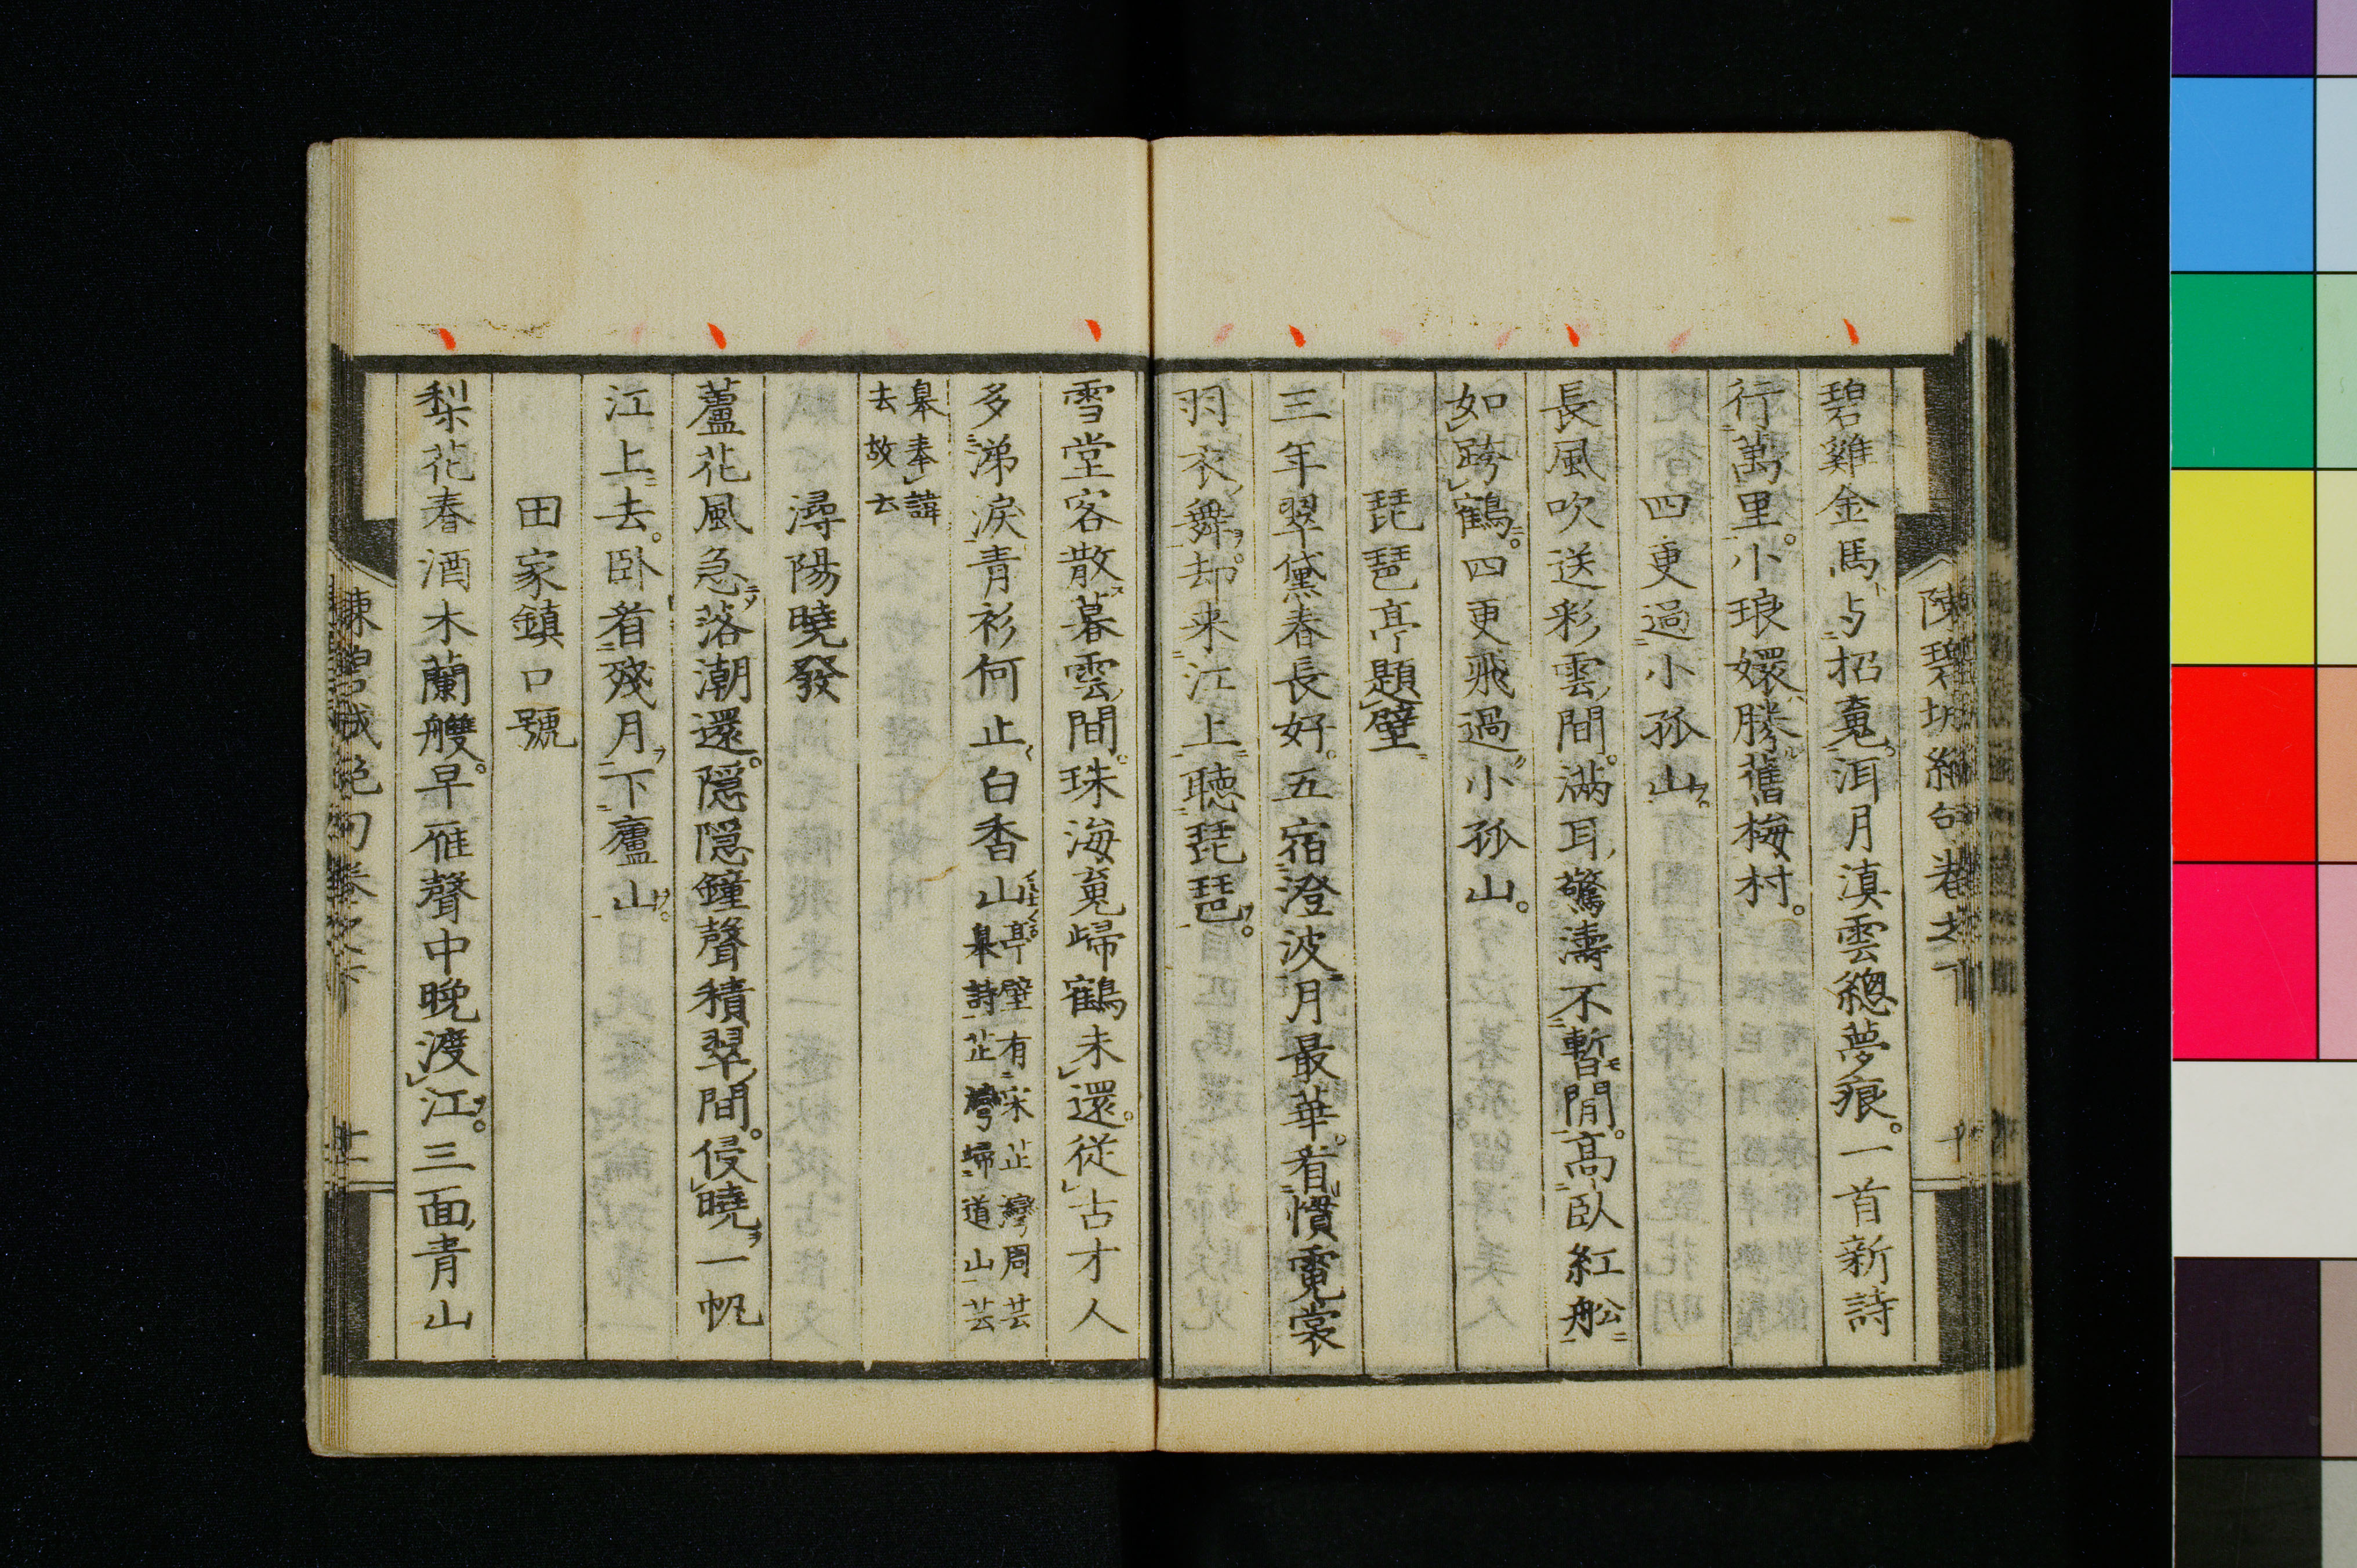 碧雞金馬与招䰟。洱月滇雲總夢痕。一首新詩
行萬里。小琅嬛勝舊梅村。
四更過小孤山
長風吹送彩雲間。滿耳驚濤不暫閒。高臥紅舩
如跨鶴。四更飛過小孤山。
琵琶亭題壁
三年翠黛春長好。五宿澄波月最華。看慣霓裳
羽衣舞。却来江上聽琵琶。
雪堂客散暮雲間。珠海䰟歸鶴未還。從古才人
多涕淚青衫何止白香山亭壁有宋芷灣周芸
皋詩芷灣歸道山芸
皋奉諱
去故云
潯陽曉發
蘆花風急落潮還。隱隱鐘聲積翠間。侵曉一帆
江上去。卧看殘月下廬山。
田家鎮口號
梨花春酒木蘭艭。早雁聲中晚渡江。三面青山